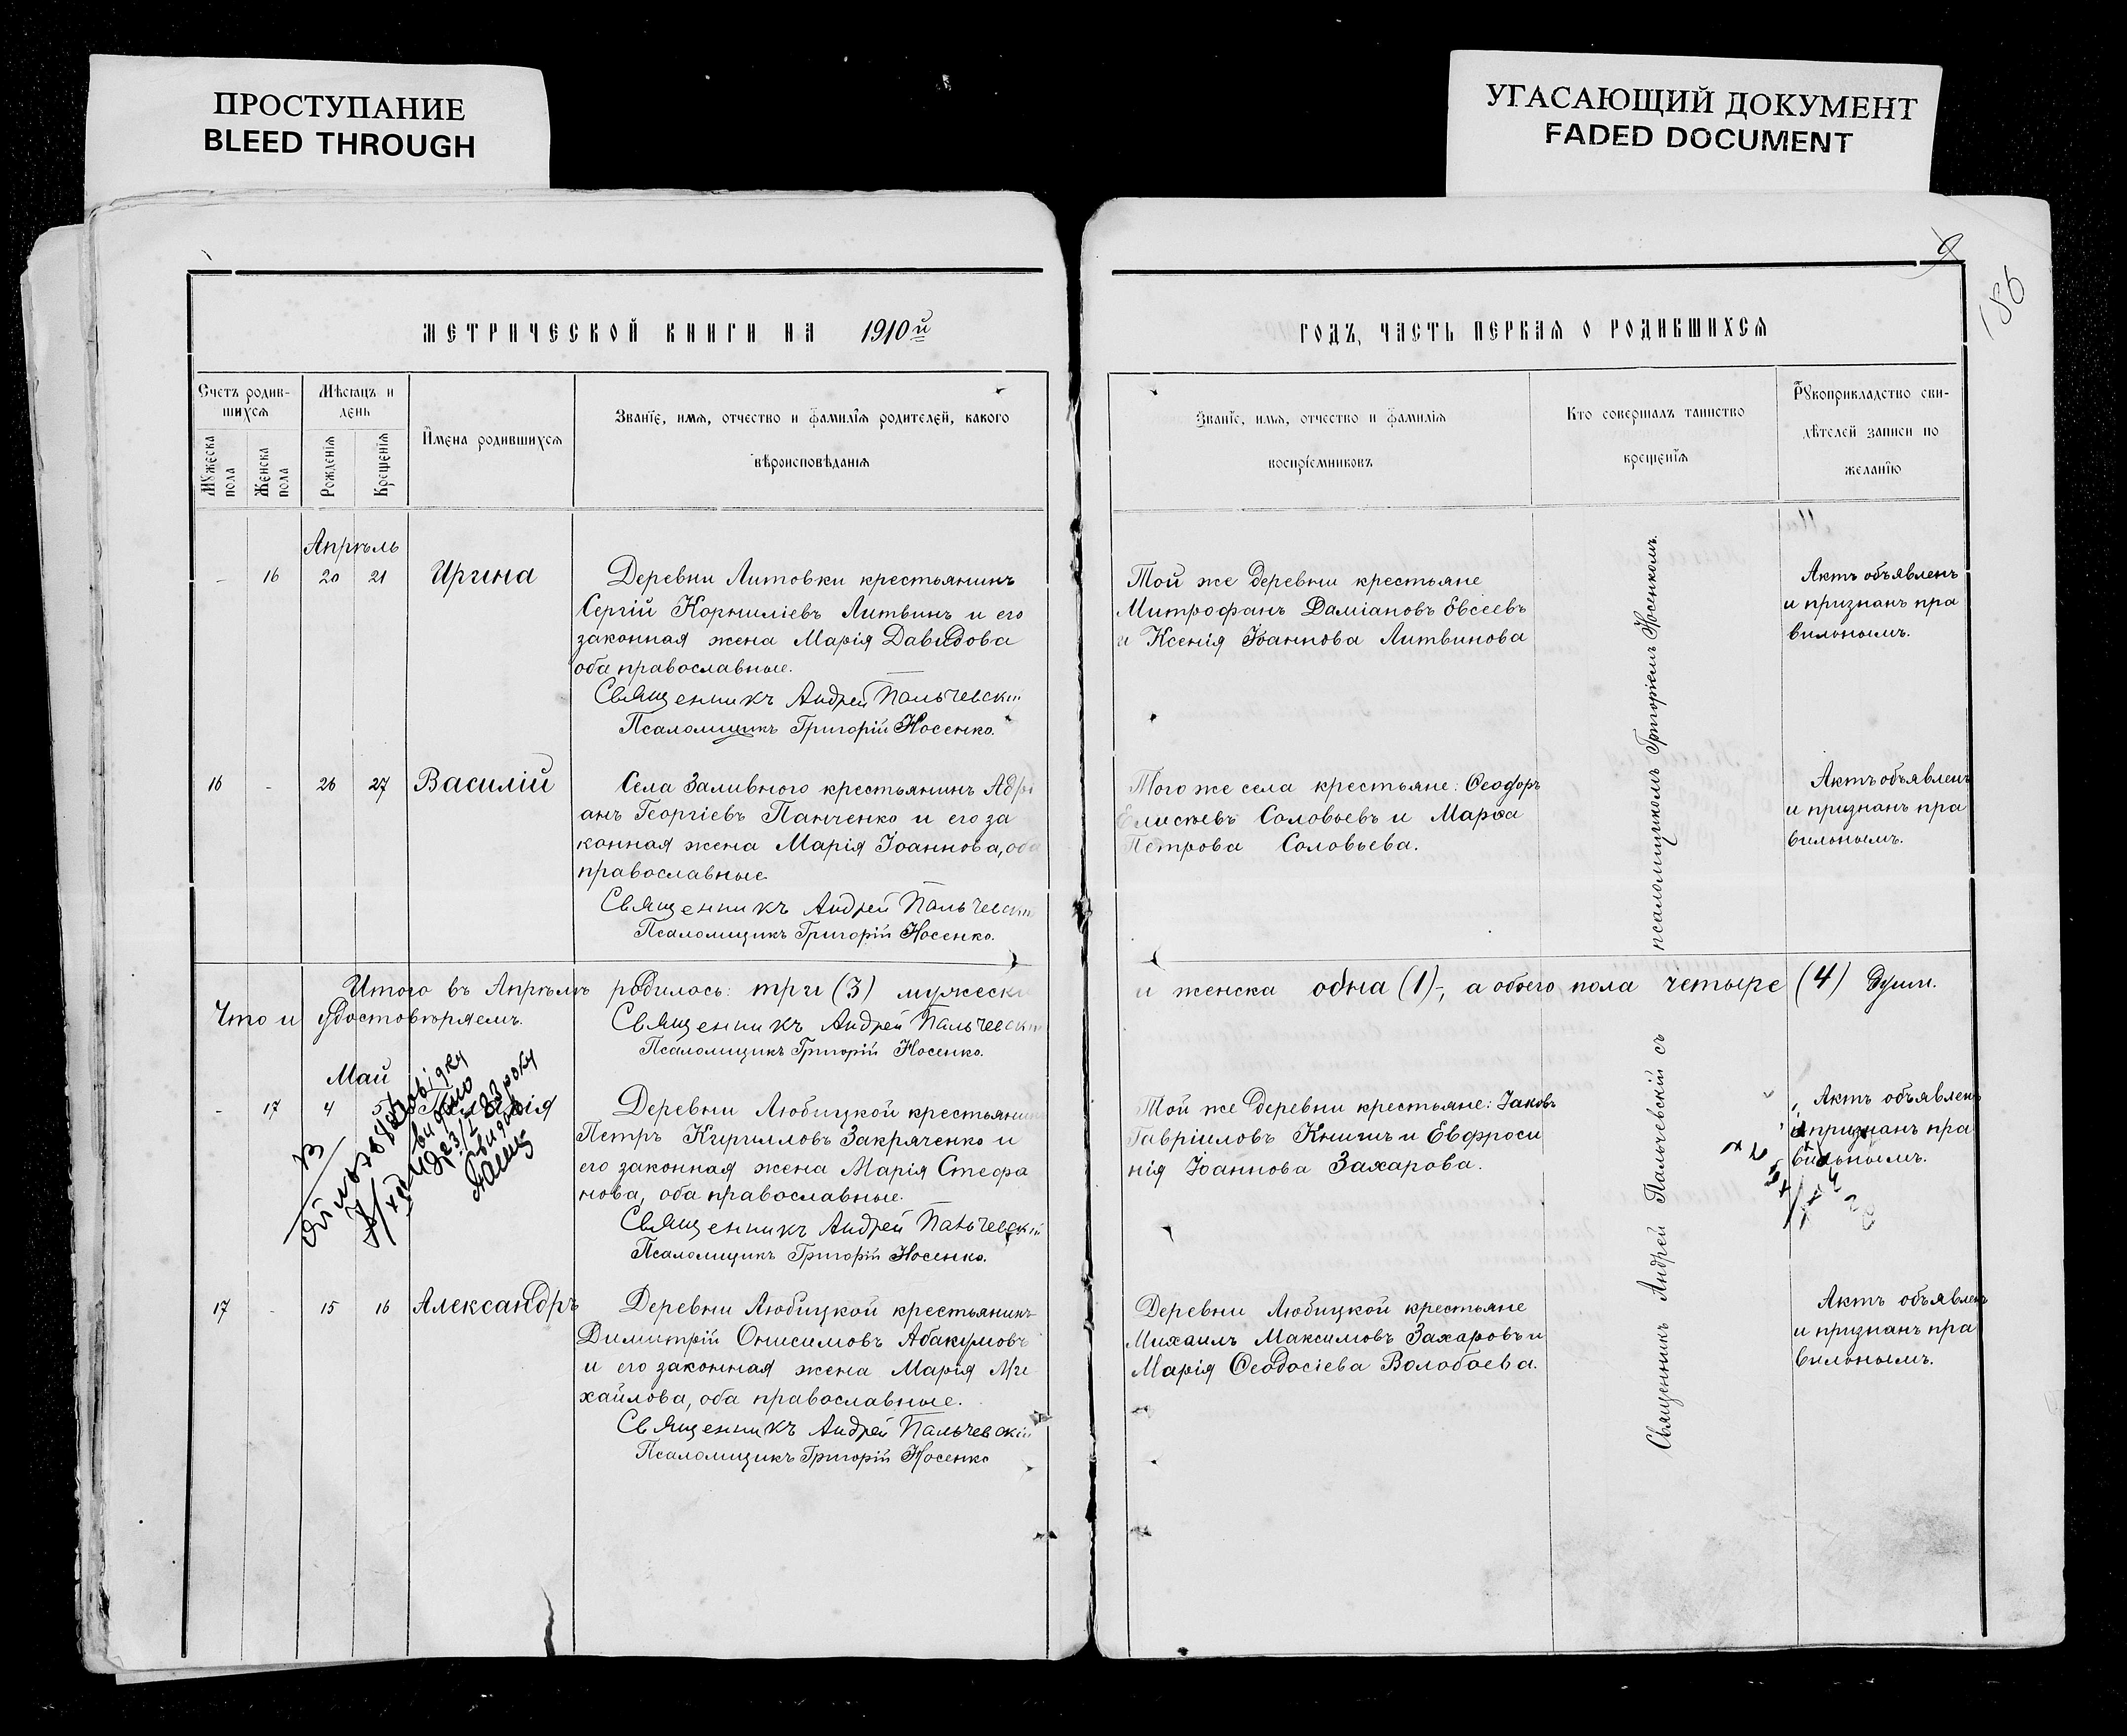 ПРОСТУПАНИЕ
BLEED THROUGH
УГАСАЮЩИЙ ДОКУМЕНТ
FADED DOCUMENT
9
186
МЕТРИЧЕСКОЙ КНИГИ НА 1910й
Счетъ родив-
шихся
Мѣсяцъ и
день
Мужеска
пола
Женска
пола
Рожденія
Крещенія
Имена родившихся
Званіе, имя, отчество и фамилія родителей, какого
вѣроисповѣданія
Апрѣль
- 16 20 21 Ирина
Деревни Литовки крестьянинъ
Сергій Корниліевъ Литвинъ и его
законная жена Марія Давидова
оба православные.
Священникъ Андрей Пальчевскій
Псаломщикъ Григорій Носенко.
16 - 26 27 Василій
Села Заливного крестьянинъ Адрі
анъ Георгіевъ Панченко и его за
конная жена Марія Іоаннова, оба
православные
Священникъ Андрей Пальчевскій
Псаломщикъ Григорій Носенко.
Итого въ Апрѣлѣ родилось: три (3) мужеска
Что и удостовѣряемъ.
Священникъ Андрей Пальчевскій
Псаломщикъ Григорій Носенко.
Май
- 17 4 5
Деревни Любицкой крестьянинъ
Петръ Кирилловъ Закряченко и
его законная жена Марія Стефа
нова, оба православные.
Священникъ Андрей Пальчевскій
Псаломщикъ Григорій Носенко.
17 - 15 16 Александръ
Деревни Любицкой крестьянинъ
Димитрій Онисимовъ Абакумовъ
и его законная жена Марія Ми
хайлова, оба православные.
Священникъ Андрей Пальчевскій
Псаломщикъ Григорій Носенко
ГОДЪ, ЧАСТЬ ПЕРВАЯ О РОДИВШИХСЯ
Званіе, имя, отчество и фамилія
воспріемниковъ
Кто совершалъ таинство
крещенія
Рукоприкладство сви-
дѣтелей записи по
желанію
Той же деревни крестьяне
Митрофанъ Даміановъ Евсеевъ
и Ксенія Іоаннова Литвинова
Актъ объявленъ
и признанъ пра
вильнымъ.
Того же села крестьяне: Ѳеодоръ
Елисѣевъ Соловьевъ и Марѳа
Петрова Соловьева.
Актъ объявленъ
и признанъ пра
вильнымъ.
и женска одна (1)-, а обоего пола четыре (4) души.
Той же деревни крестьяне: Іаковъ
Гавріиловъ Книшъ и Евфроси
нія Іоаннова Захарова.
Актъ объявленъ
и признанъ пра
вильнымъ.
Деревни Любицкой крестьяне
Михаилъ Максимовъ Захаровъ и
Марія Ѳеодосіева Волобоева.
Актъ объявленъ
и признанъ пра
вильнымъ.
Священникъ Андрей Пальчевскій съ псаломщикомъ Григоріемъ Носенкомъ.